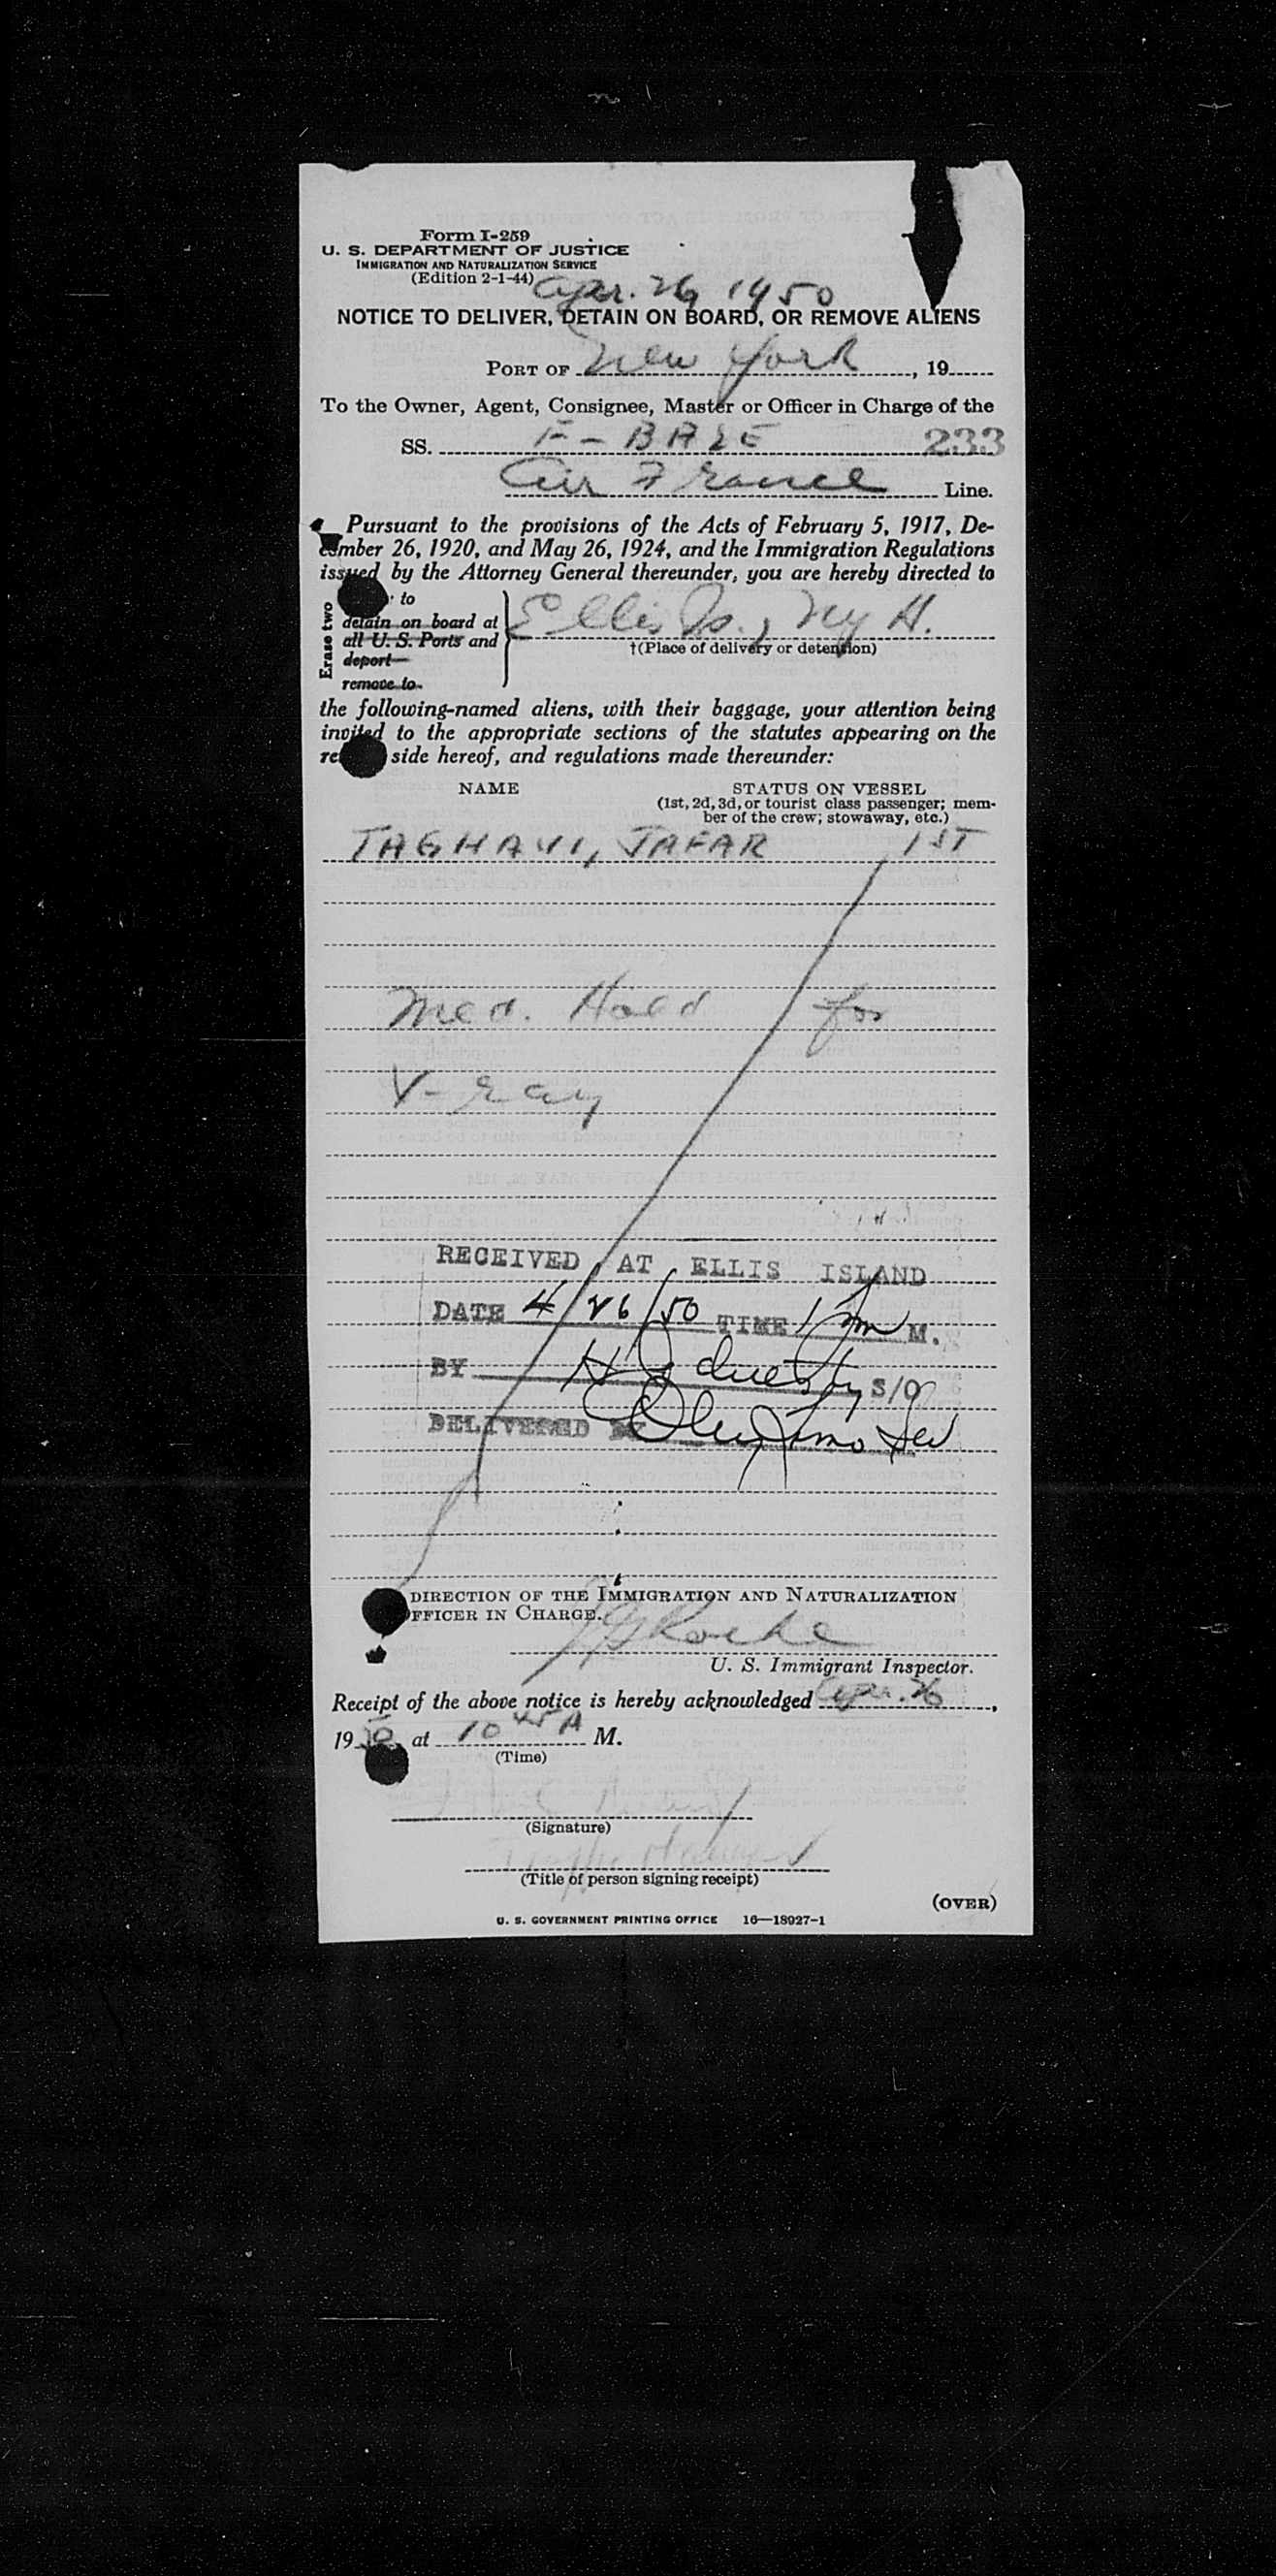 Form I-259
U. S. DEPARTMENT OF JUSTICE
IMMIGRATION AND NATURALIZATION SERVICE
(Edition 2-1-44)
Apr. 26, 1950
NOTICE TO DELIVER, DETAIN ON BOARD, OR REMOVE ALIENS
PORT OF New York, 19
To the Owner, Agent, Consignee, Master or Officer in Charge of the
SS. F-BAZE 233
Air France Line.
Pursuant to the provisions of the Acts of February 5, 1917, De-
cember 26, 1920, and May 26, 1924, and the Immigration Regulations
issued by the Attorney General thereunder, you are hereby directed to
Erase two
to
detain on board at
all U. S. Ports and
deport
remove to
Ellis Is., NY H.
†(Place of delivery or detention)
the following-named aliens, with their baggage, your attention being
invited to the appropriate sections of the statutes appearing on the
side hereof, and regulations made thereunder:
NAME STATUS ON VESSEL
(1st, 2d, 3d, or tourist class passenger; mem-
ber of the crew; stowaway, etc.)
TAGHAVI, JAFAR 1ST
Med. Hold for
X-ray
RECEIVED AT ELLIS ISLAND
DATE 4/26/50 TIME 1 pm M.
BY S/O
DELIVERED BY
DIRECTION OF THE IMMIGRATION AND NATURALIZATION
OFFICER IN CHARGE.
Roche
U. S. Immigrant Inspector.
Receipt of the above notice is hereby acknowledged Apr. 26,
1950, at 10 45 A M.
(Time)
(Signature)
(Title of person signing receipt)
(OVER)
U. S. GOVERNMENT PRINTING OFFICE 16—18927-1